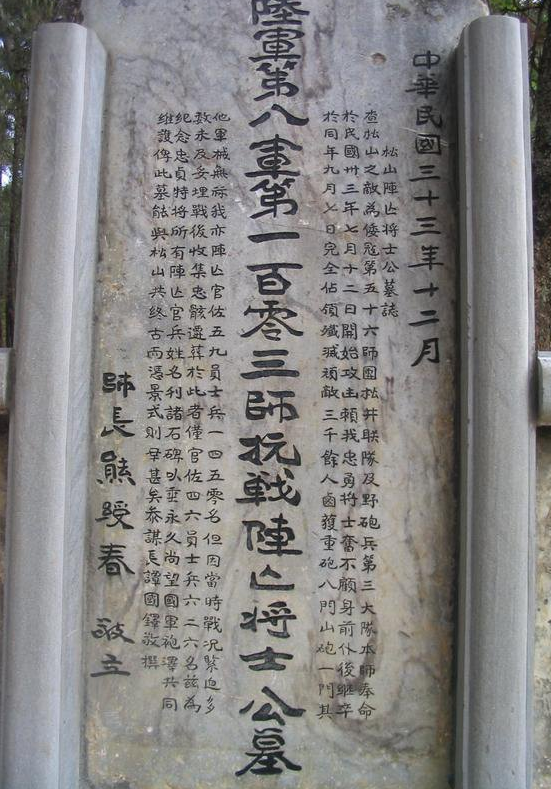 中華民國三十三年十二月
松山陣亡将士公墓誌
查松山之敵為倭寇第五十六師團松井联隊及野砲兵第三大隊本師奉命
於民國卅三年七月十二日開始攻击賴我忠勇将士奮不顧身前仆後继卒
於同年九月七日完全佔領殲滅頑敵三千餘人鹵獲重砲八門山砲一門其
陸軍第八軍第一百零三師抗戰陣亡将士公墓
他軍械無祘我亦陣亡官佐五九員士兵一四五零名但因當時戰况緊迫多
數未及妥埋戰後收集忠骸遷葬於此者僅官佐四六員士兵六二六名兹為
紀念忠貞特将所有陣亡官兵姓名刊諸石碑以垂永久尚望國軍袍澤共同
維護俾此墓能與松山共终古而憑景式則幸甚矣叅謀長譚國鐸敬撰
師長熊綬春 敬立